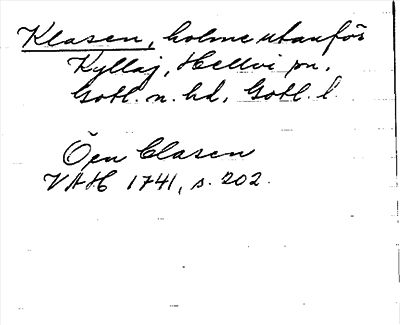 Klasen, holme utanför
Kyllaj, Hellvi sn.
Gotl. n. hd, Gotl. l.
Öen Clasen
VAH 1741, s. 202.